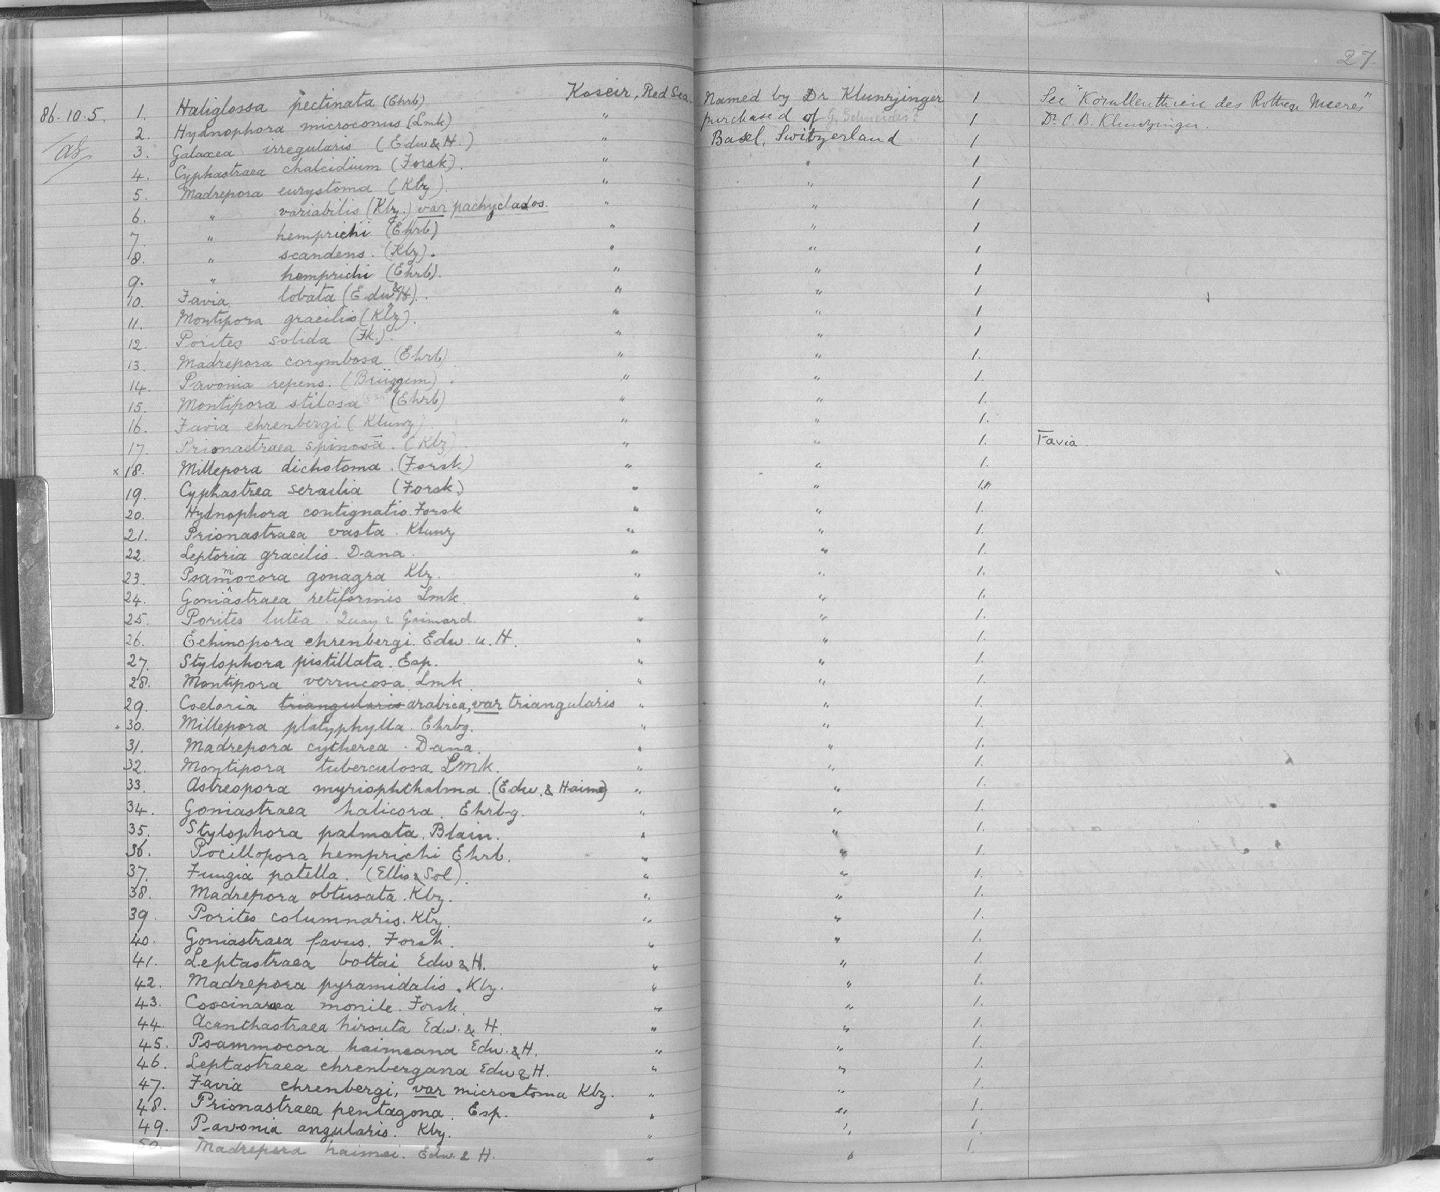 27
86.10.5. 1. Haliglossa pectinata (Ehrb) Koseir, Red Sea. Named by Dr Klunzinger 1 See "Korallenthiere des Rothen Meeres"
2. Hydnophora microconus (Lmk) " purchased of 1 Dr C. B. Klunzinger.
3. Galaxea irregularis (Edw & H.) " Basel, Switzerland 1
4. Cyphastraea chalcidium (Forsk). " " 1
5. Madrepora eurystoma (Klz). " " 1
6. " variabilis (Klz.) var pachyclados. " " 1
7. " hemprichi (Ehrb) " " 1
8. " scandens. (Klz). " " 1
9. " hemprichi (Ehrb). " " 1
10. Favia lobata (Edw & H). " " 1
11. Montipora gracilis (Klz). " " 1
12. Porites solida (Fk). " " 1
13. Madrepora corymbosa (Ehrb) " " 1.
14. Pavonia repens. (Brüggem). " " 1.
15. Montipora stilosa (Ehrb) " " 1.
16. Favia ehrenbergi (Klunz) " " 1.
17. Prionastraea spinosa. (Klz). " " 1. Favia
x 18. Millepora dichotoma. (Forsk) " " 1.
19. Cyphastrea serailia (Forsk.) " " 1.
20. Hydnophora contignatio. Forsk " " 1.
21. Prionastraea vasta. Klunz " " 1.
22. Leptoria gracilis. Dana. " " 1.
23. Psammocora gonagra Klz. " " 1.
24. Goniastraea retiformis Lmk. " " 1.
25. Porites lutea. Quoy & Gaimard. " " 1.
26. Echinopora ehrenbergi. Edw. u. H. " " 1.
27. Stylophora pistillata. Esp. " " 1.
28. Montipora verrucosa. Lmk. " " 1.
29. Coeloria triangularis arabica, var triangularis " " 1.
30. Millepora platyphylla. Ehrbg. " " 1.
31. Madrepora cytherea. Dana. " " 1.
32. Montipora tuberculosa. Lmk. " " 1.
33. Astreopora myriophthalma. (Edw. & Haime) " " 1.
34. Goniastraea halicora. Ehrbg. " " 1.
35. Stylophora palmata. Blain. " " 1.
36. Pocillopora hemprichi Ehrb. " " 1.
37. Fungia patella. (Ellis & Sol). " " 1.
38. Madrepora obtusata. Klz. " " 1.
39. Porites columnaris. Klz. " " 1.
40. Goniastraea favus. Forsk. " " 1.
41. Leptastraea bottai Edw & H. " " 1.
42. Madrepora pyramidalis. Klz. " " 1.
43. Coscinaraea monile. Forsk. " " 1.
44. Acanthastraea hirsuta Edw. & H. " " 1.
45. Psammocora haimeana Edw. & H. " " 1.
46. Leptastraea ehrenbergana Edw & H. " " 1.
47. Favia ehrenbergi, var microstoma Klz. " " 1.
48. Prionastraea pentagona. Esp. " " 1.
49. Pavonia angularis. Klz. " " 1.
50. Madrepora haimei. Edw. & H. " " 1.